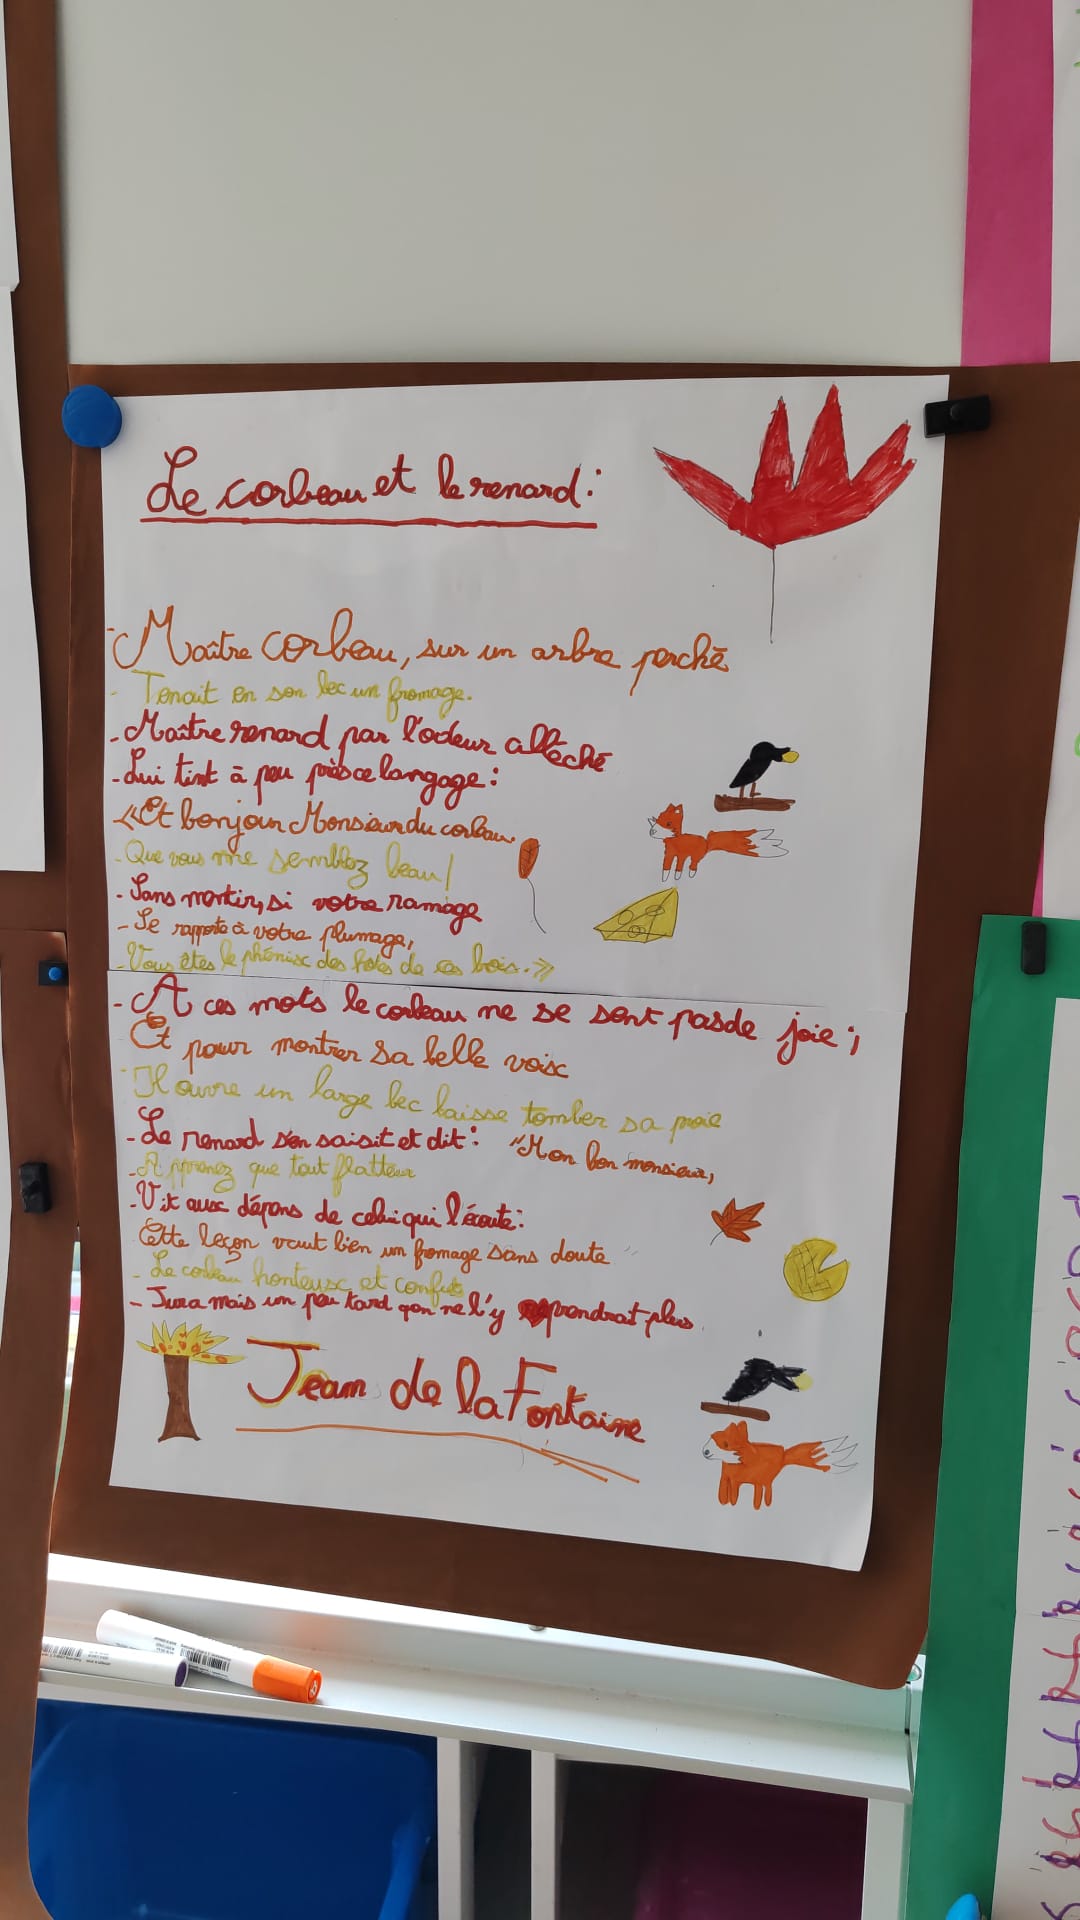 Le corbeau et le renard :
- Maître corbeau, sur un arbre perché
- Tenait en son bec un fromage.
- Maître renard par l'odeur alléché
- Lui tint à peu près ce langage :
- «Et bonjour Monsieur du corbeau.
- Que vous me semblez beau !
- Sans mentir, si votre ramage
- Se rapporte à votre plumage,
- Vous êtes le phénix des hotes de ces bois.»
- A ces mots le corbeau ne se sent pas de joie ;
Et pour montrer sa belle voix
- Il ouvre un large bec laisse tomber sa proie
- Le renard s'en saisit et dit : "Mon bon monsieur,
- Apprenez que tout flatteur
- Vit aux dépens de celui qui l'écoute :
Cette leçon vaut bien un fromage sans doute "
- Le corbeau honteux et confus
- Jura mais un peu tard qon ne l'y prendrait plus
Jean de la Fontaine